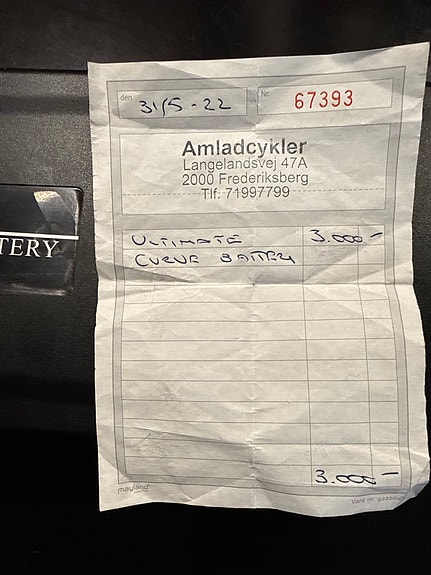 den 31/5-22 Nr. 67393
Amladcykler
Langelandsvej 47A
2000 Frederiksberg
Tlf. 71997799
ULTIMATE 3.000-
CURVE BATTERY
TERY
3.000-
mayland
Vare nr.